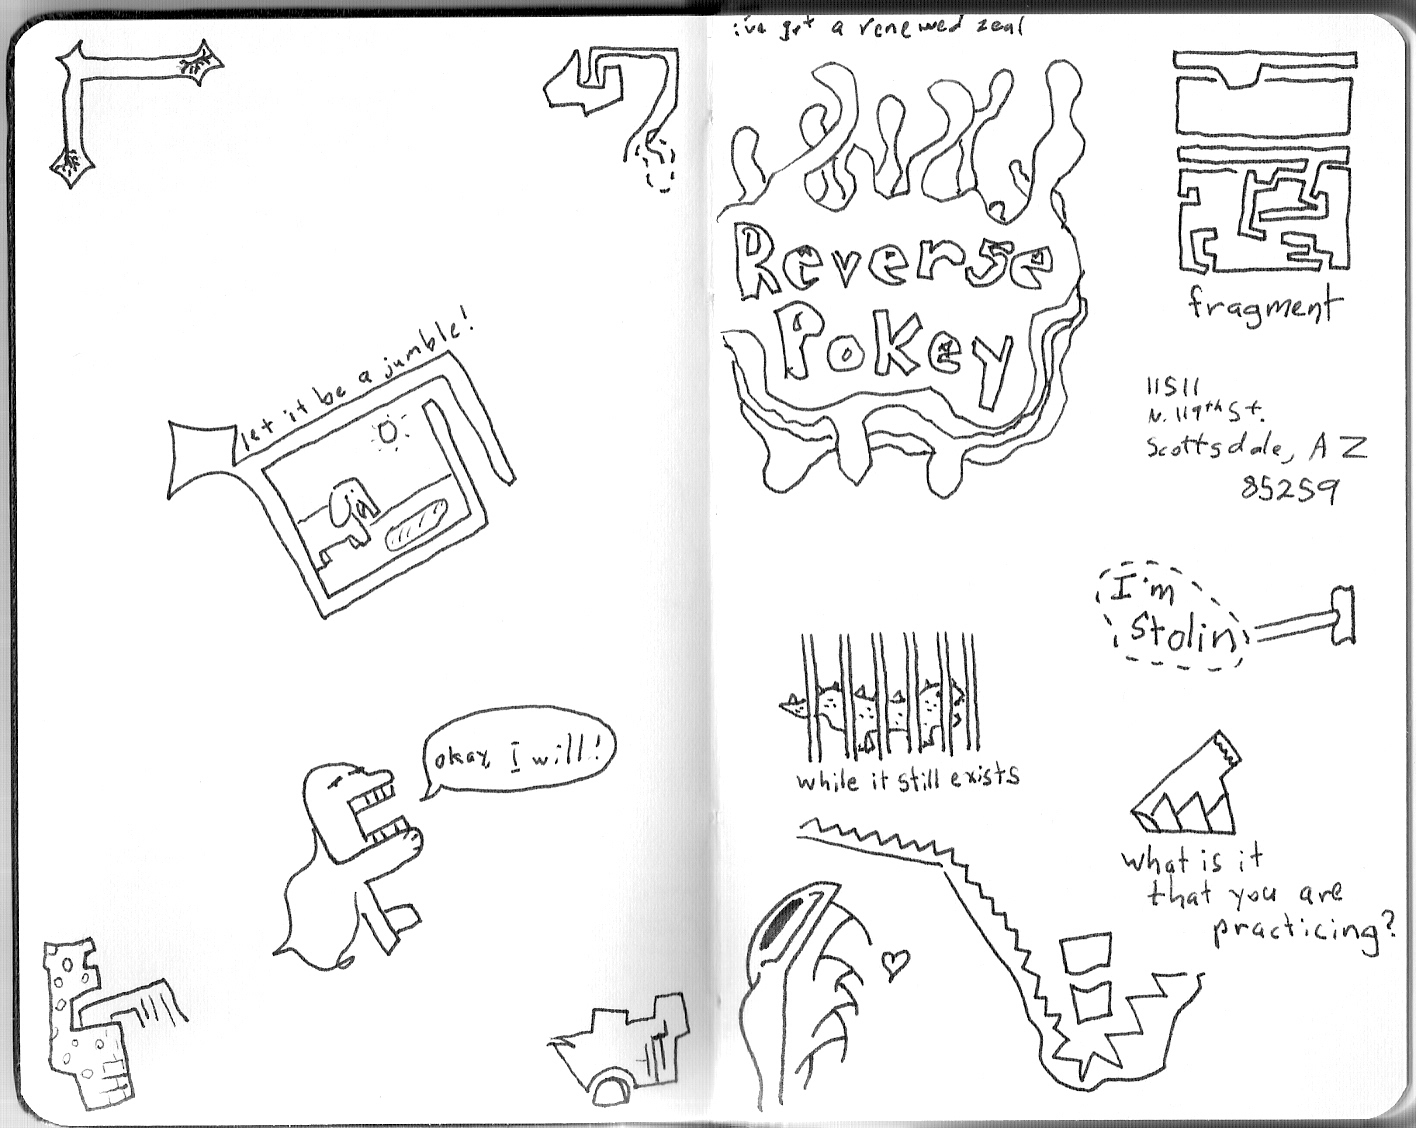 let it be a jumble!
okay, I will!
i've got a renewed zeal
Reverse
Pokey
fragment
11511
N. 119th St.
Scottsdale, AZ
85259
I'm
stolin
while it still exists
what is it
that you are
practicing?